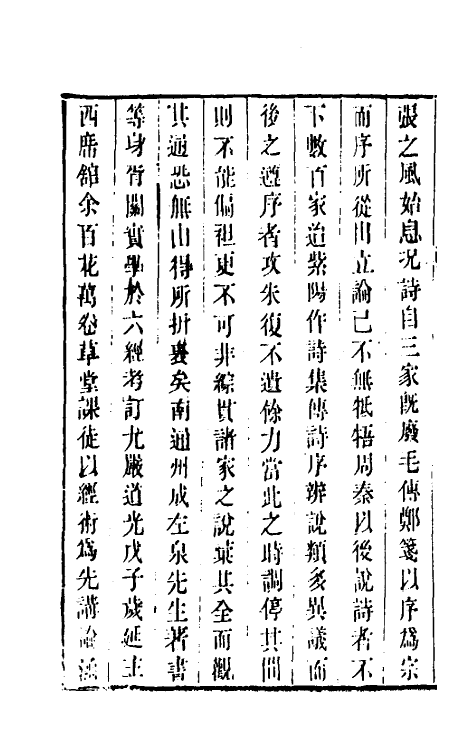 張之風始息况詩自三家既廢毛傳鄭箋以序爲宗
而序所從出立論已不無牴牾周秦以後說詩者不
下數百家迨紫陽作詩集傳詩序辨說類多異議而
後之遵序者攻朱復不遺餘力當此之時調停其間
則不能偏袒更不可非綜貫諸家之說葉其全而觀
其通恐無由得所折衷矣南通州成左泉先生著書
等身胥關實學於六經考訂尤嚴道光戊子歲延主
西席舘余百花萬卷草堂課徒以經術爲先講論涵